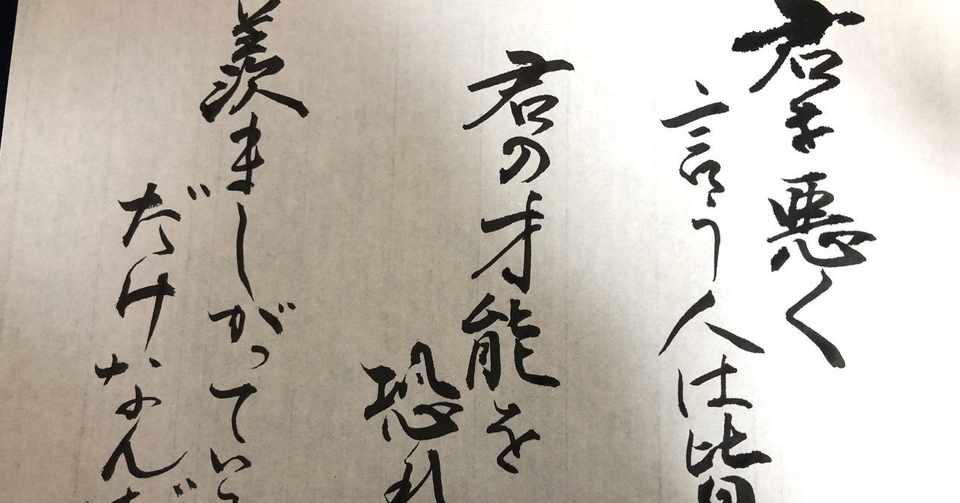 君を悪く
言う人は皆
君の才能を
恐れ
羨ましがってい
だけなんだ